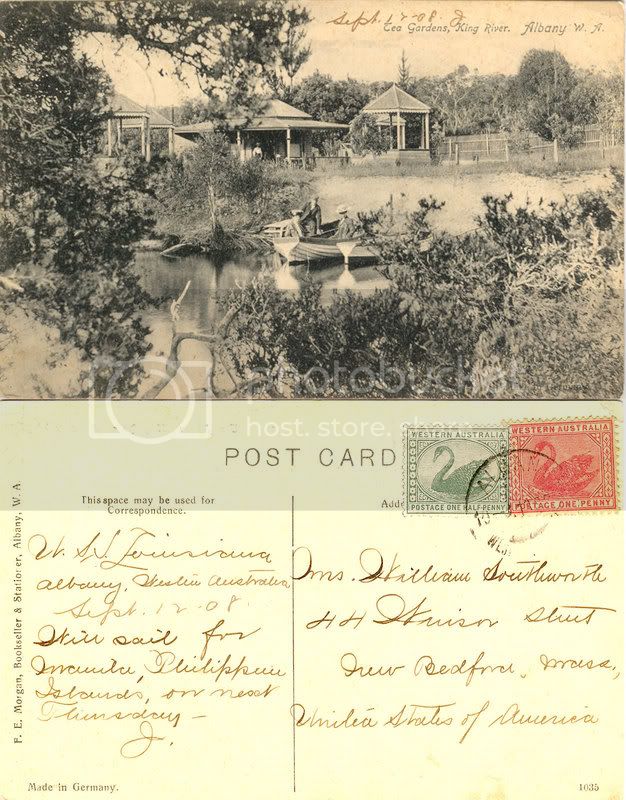 Sept. 17-08. J.
Tea Gardens, King River. Albany W. A.
photobucket
host. store. share.
POST CARD
This space may be used for
Correspondence.
WESTERN AUSTRALIA
POSTAGE ONE HALF-PENNY
WESTERN AUSTRALIA
POSTAGE ONE PENNY
F. E. Morgan, Bookseller & Stationer, Albany, W. A
U. S. S. Louisiana
Albany, Western Australia
Sept. 12-08.
Will sail for
Manila, Philippine
Islands, on next
Thursday—
J.
Mrs. William Southworth
44 Winsor Street
New Bedford, Mass,
United States of America
Made in Germany.
1035